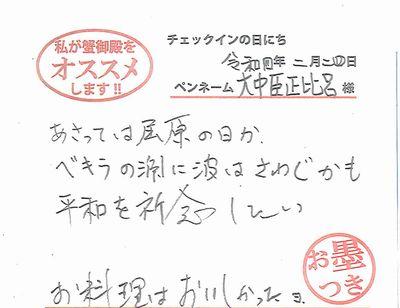 私が蟹御殿を
オススメ
します!!
チェックインの日にち
令和四年 二月二四日
ペンネーム 大中臣正比呂 様
あさっては屈原の日か
ベキラの渕に波はさわぐかも
平和を祈念したい
お墨
つき
お料理はおいしかったヨ